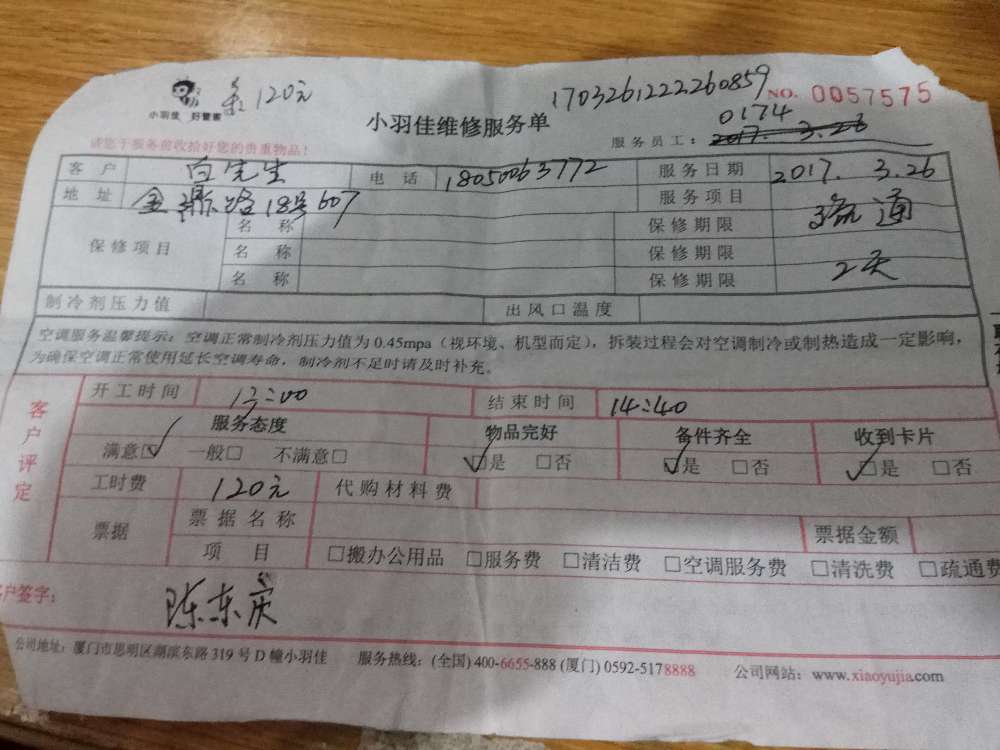 120元
1703261222260859
小羽佳 好管家
小羽佳维修服务单
NO. 0057575
0174
服务员工: 2017. 3.26
请您于服务前收拾好您的贵重物品!
客户 白先生 电话 18050063772 服务日期 2017. 3.26
地址 金鼎路18号607 服务项目 疏通
保修项目
名称 保修期限
名称 保修期限
名称 保修期限 2天
制冷剂压力值 出风口温度
空调服务温馨提示:空调正常制冷剂压力值为0.45mpa(视环境、机型而定),拆装过程会对空调制冷或制热造成一定影响,
为确保空调正常使用延长空调寿命,制冷剂不足时请及时补充。
客户评定
开工时间 13:00 结束时间 14:40
服务态度 物品完好 备件齐全 收到卡片
满意☑ 一般□ 不满意□ ☑是 □否 ☑是 □否 ☑是 □否
工时费 120元 代购材料费
票据 票据名称 票据金额
项目 □搬办公用品 □服务费 □清洁费 □空调服务费 □清洗费 □疏通费
客户签字: 陈东庆
公司地址:厦门市思明区湖滨东路319号D幢小羽佳 服务热线:(全国) 400-6655-888 (厦门) 0592-5178888 公司网站:www.xiaoyujia.com